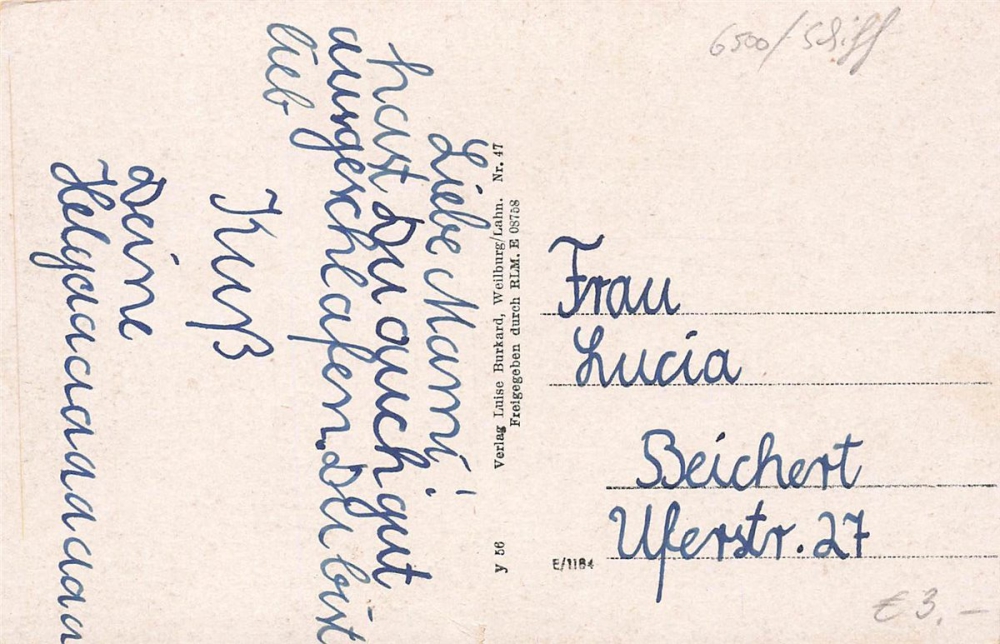 Liebe Mami!
hast Du auch gut
ausgeschlafen. Du bist
lieb
Kuß
Deine
Helgaaaaaaaaaa
y 56 Verlag Luise Burkard, Weilburg/Lahn. Nr. 47
Freigegeben durch RLM. E 08758
6500/Schiff
Frau
Lucia
Beichert
Uferstr. 27
E/1184
€ 3.-